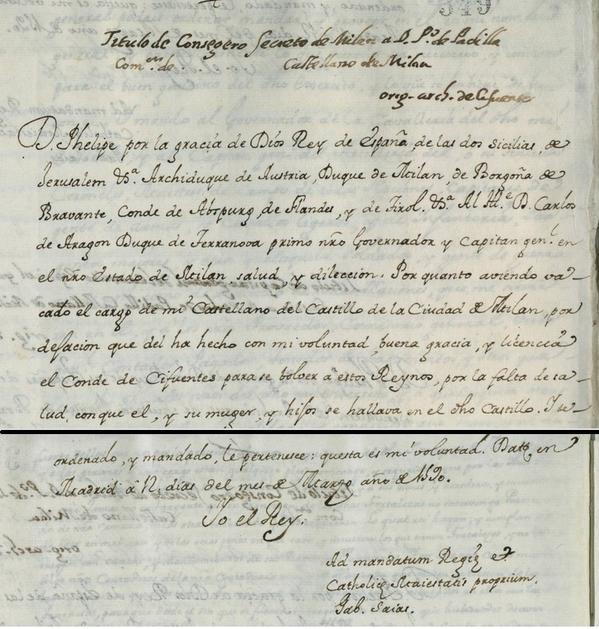 349
Titulo de Consegero Secreto de Milan a D. P.º de Padilla
Com.or de Castellano de Milan
orig. arch. de Cifuentes
D. Phelipe por la gracia de Dios Rey de España, de las dos Sicilias, de
Jerusalem &.ª Archiduque de Austria, Duque de Milan, de Borgoña de
Bravante, Conde de Abspurg, de Flandes, y de Tirol. &.ª Al Ill.e D. Carlos
de Aragon Duque de Terranova primo nro Governador y Capitan gen.l en
el nro Estado de Milan salud, y dilección. Por quanto aviendo va-
cado el cargo de mi Castellano del Castillo de la Ciudad de Milan, por
dejacion que del ha hecho con mi voluntad, buena gracia, y licencia
el Conde de Cifuentes para se bolver a estos Reynos, por la falta de sa-
lud, con que el, y su muger, y hijos se hallava en el dho Castillo. Y
ordenado, y mandado, le pertenesce: questa es mi voluntad. Dat. en
Madrid à 12 dias del mes de Março año de
Yo el Rey.
Ad mandatum Regię et
Catholicę Maiestatis proprium.
Gab. Saias.